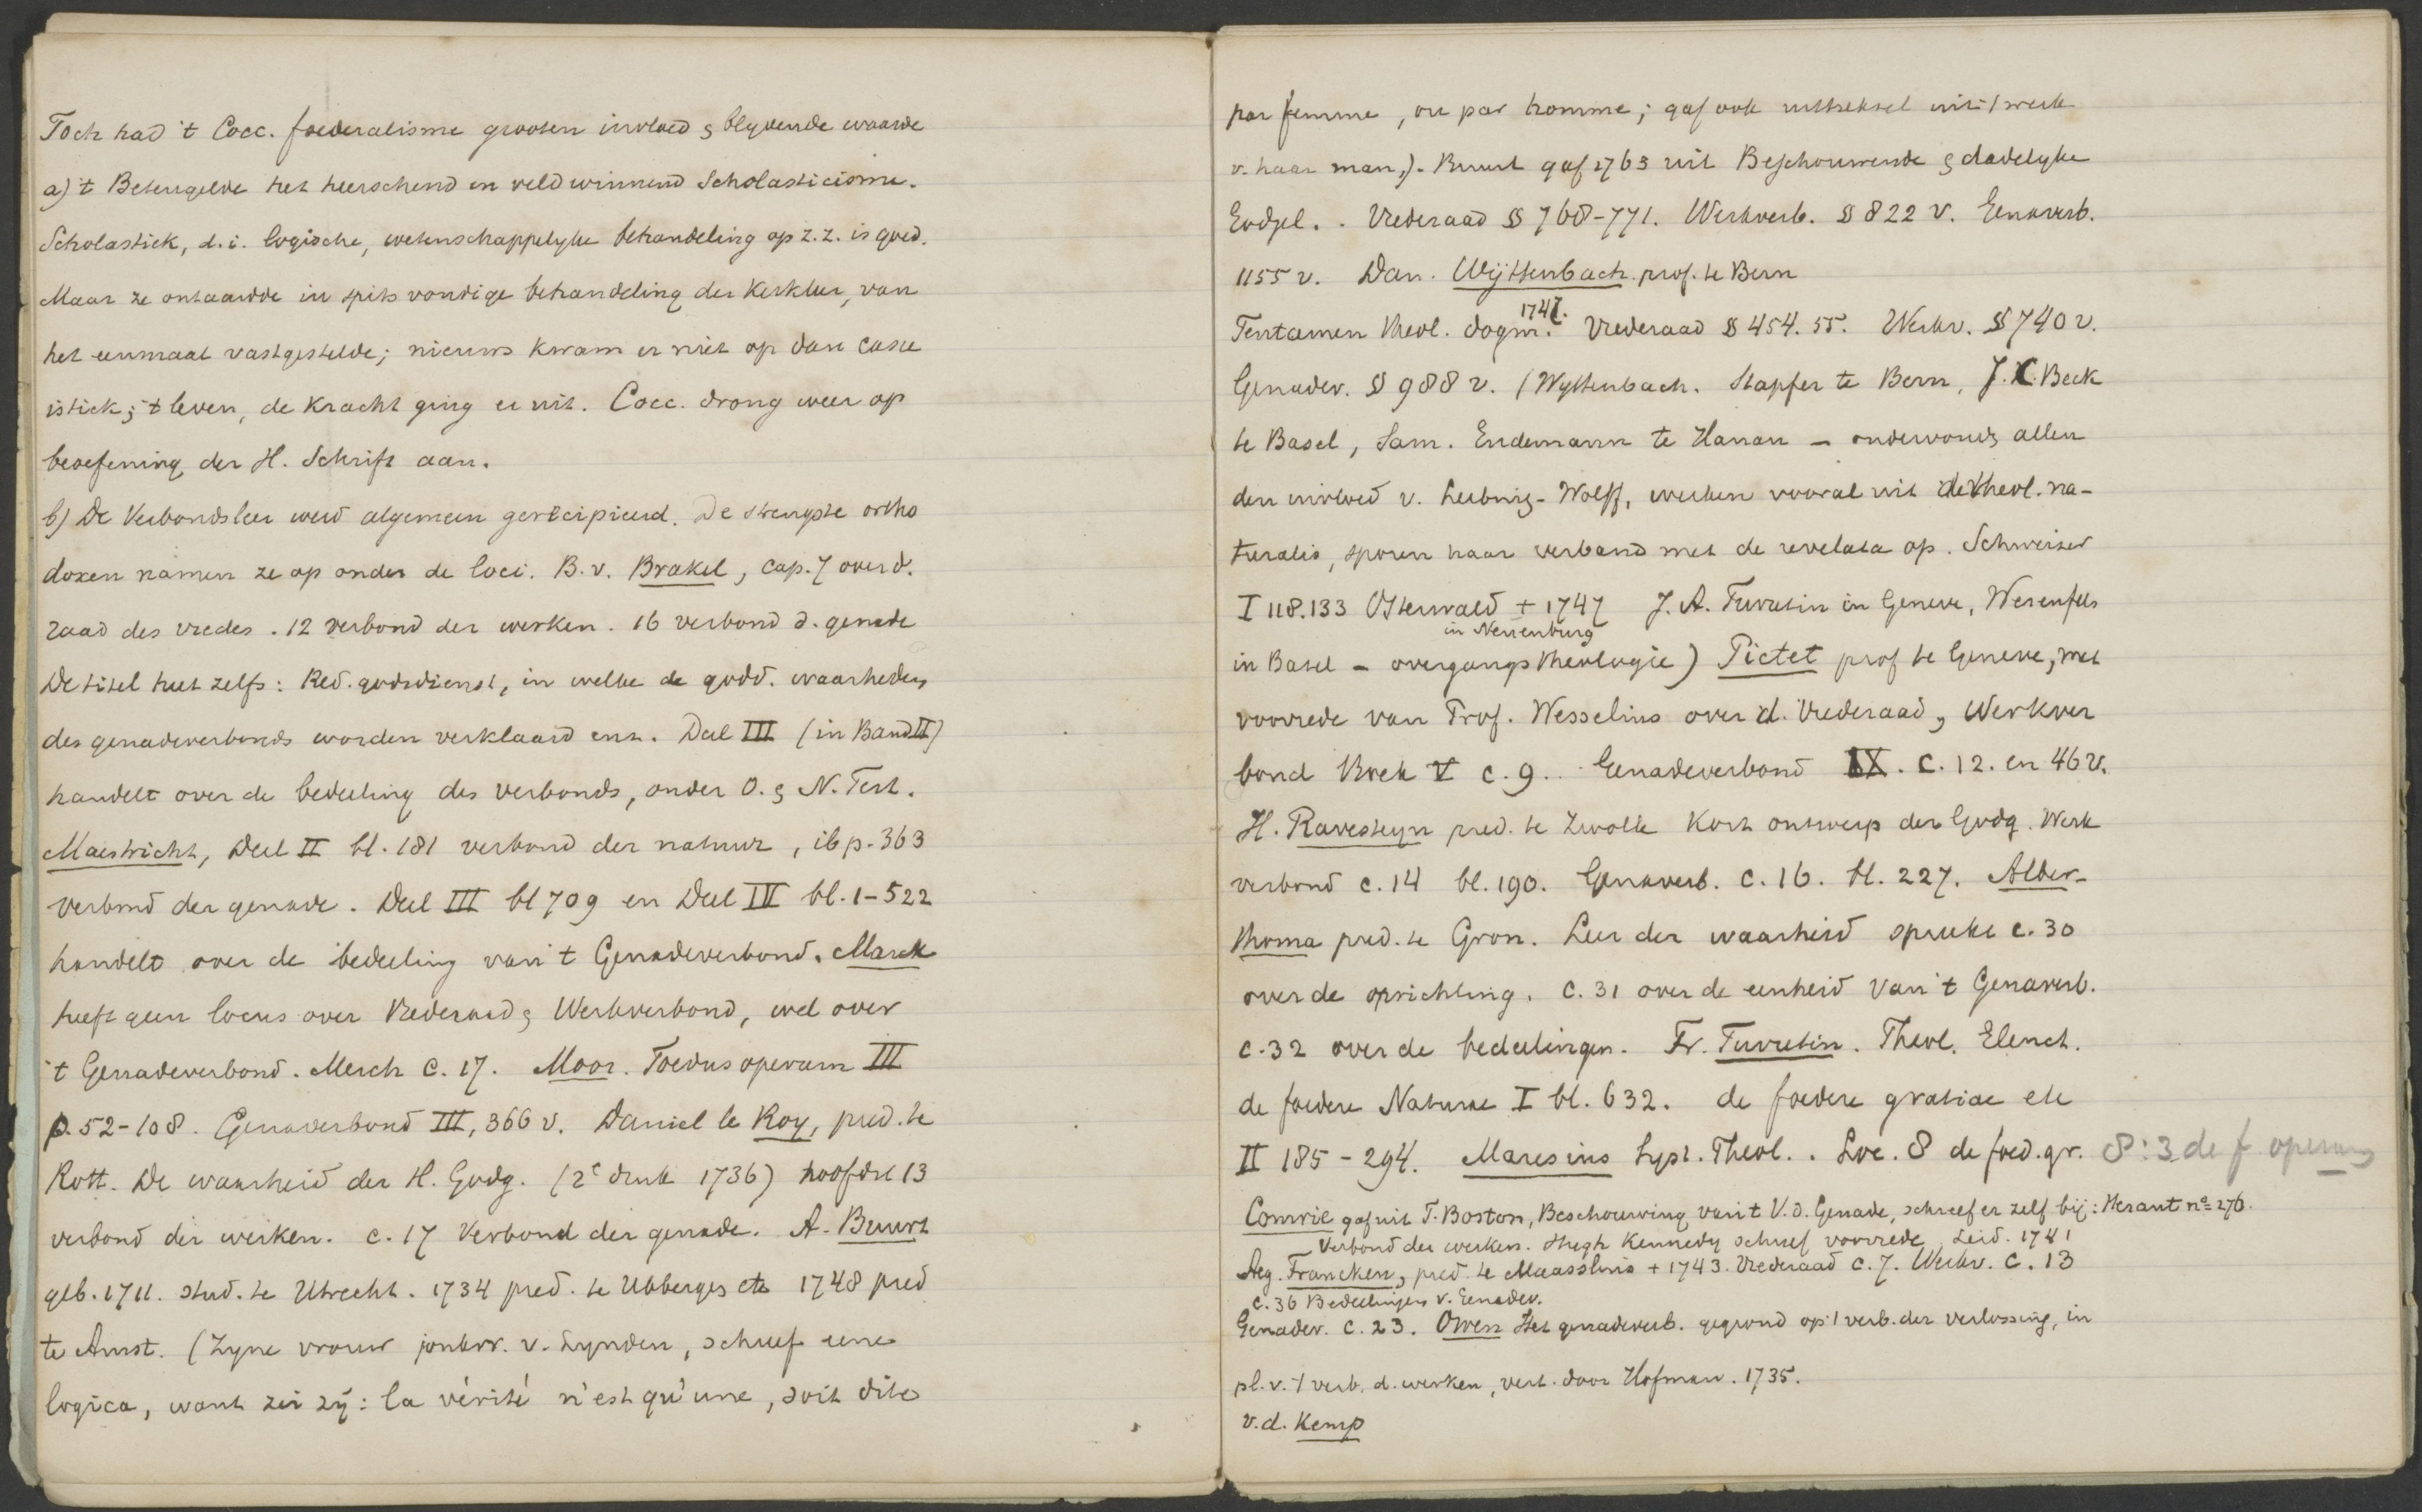 Toch had 't Cocc. foederalisme grooten invloed & blyvende waarde
a) 't Beteugelde het heerschend en veldwinnend Scholasticisme.
Scholastiek, d.i. logische, wetenschappelyke behandeling op z.z. is goed.
Maar ze ontaardde in spitsvondige behandeling der Kerkleer, van
het eenmaal vastgestelde; nieuws kwam er niet op dan casu
istiek; 't leven, de kracht ging er uit. Cocc. drong weer op
beoefening der H. Schrift aan.
b) De Verbondsleer werd algemeen gerecipieerd. De strengste ortho
doxen namen ze op onder de loci. B.v. Brakel, cap. 7 over d.
raad des vredes. 12 verbond der werken. 16 verbond d. genade
De titel heet zelfs: Red. godsdienst, in welke de godd. waarheden
des genadeverbonds worden verklaard enz. Deel III (in Band II)
handelt over de bedeeling des verbonds, onder O. & N. Test.
Mastricht, Deel II bl. 181 verbond der natuur, ib p. 363
verbond der genade. Deel III bl 709 en Deel IV bl. 1-522
handelt over de bedeeling van 't Genadeverbond. Marck
heeft geen locus over Vrederaad & Werkverbond, wel over
't Genadeverbond. Merch c. 17. Moor. Foedus operum III
p. 52-108. Genaverbond III, 366 v. Daniel le Roy, pred. te
Rott. De waarheid der H. Godg. (2e druk 1736) hoofdst 13
verbond der werken. c. 17 Verbond der genade. A. Buurt
geb. 1711. stud. te Utrecht. 1734 pred. te Ubbergen etc 1748 pred
te Amst. (Zyne vrouw jonkvr. v. Lynden, schreef eene
logica, want zei zÿ: la vérité n'est qu'une, soit dite
par femme, ou par homme; gaf ook uittreksel uit 't werk
v. haar man.). Buurt gaf 1763 uit Beschouwende & dadelyke
Godgel. . Vrederaad § 768-771. Werkverb. § 822 v. Genaverb.
1155 v. Dan. Wÿttenbach prof. te Bern
Tentamen theol. dogm. 1747. Vrederaad § 454. 55. Werkv. § 740 v.
Genadev. § 988 v. (Wyttenbach. Stapfer te Bern, J. C. Beck
te Basel, Sam. Endemann te Hanau - ondervonden allen
den invloed v. Leibniz-Wolff, werken vooral uit de theol. na-
turalis, sporen haar verband met de revelata op. Schweizer
I 118.133 Osterwald + 1747 J. A. Turretin in Geneve, Werenfels
in Neuenburg
in Basel - overgangstheologie) Pictet prof te Geneve, met
voorrede van Prof. Wesselius over d. Vrederaad, Werkver
bond Boek V c. 9. . Genadeverbond IX. c. 12. en 46 v.
H. Ravesteyn pred. te Zwolle Kort ontwerp der Godg. Werk
verbond c. 14 bl. 190. Genaverb. c. 16. bl. 227. Alber-
thoma pred. te Gron. Leer der waarheid spreekt c. 30
over de oprichting. c. 31 over de eenheid van 't Genaverb.
c. 32 over de bedeelingen. Fr. Turretin. Theol. Elench.
de foedere Naturae I bl. 632. de foedere gratiae etc
II 185-294. Maresius Syst. Theol. . Loc. 8 de foed. gr. 8:3 de f. operum
Comrie gaf uit T. Boston, Beschouwing van 't V. d. Genade, schreef er zelf bij: Heraut no 276.
Verbond der werken. Hugh Kennedy schreef voorrede Leid. 1741
Aeg. Francken, pred. te Maassluis + 1743. Vrederaad c. 7. Werkv. c. 13
c. 36 Bedeelingen v. Genadev.
Genadev. c. 23. Owen Het genadeverb. gegrond op 't verb. der verlossing, in
pl. v. 't verb. d. werken, vert. door Hofman. 1735.
v. d. Kemp